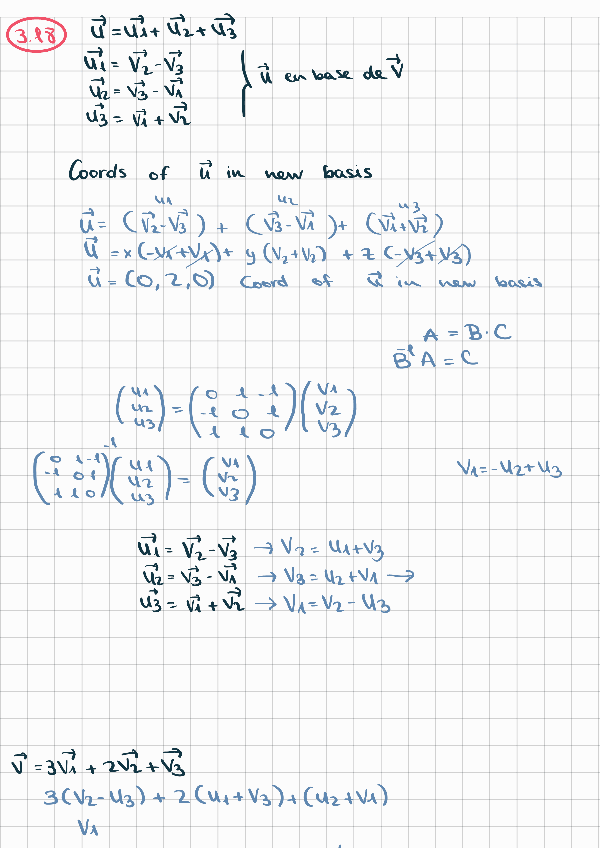 3.18
u⃗ = u⃗1 + u⃗2 + u⃗3
u⃗1 = v⃗2 - v⃗3
u⃗2 = v⃗3 - v⃗1
u⃗3 = v⃗1 + v⃗2
} u⃗ en base de v⃗
Coords of u⃗ in new basis
u1 u2 u3
u⃗ = (v⃗2 - v⃗3) + (v⃗3 - v⃗1) + (v⃗1 + v⃗2)
u⃗ = x(-v1 + v1) + y(v2 + v2) + z(-v3 + v3)
u⃗ = (0, 2, 0) Coord of u⃗ in new basis
A = B · C
B⁻¹ A = C
(u1 u2 u3) = (0 1 -1 / -1 0 1 / 1 1 0) (v1 v2 v3)
(0 1 -1 / -1 0 1 / 1 1 0)⁻¹ (u1 u2 u3) = (v1 v2 v3)
v1 = -u2 + u3
u⃗1 = v⃗2 - v⃗3 → v2 = u1 + v3
u⃗2 = v⃗3 - v⃗1 → v3 = u2 + v1 →
u⃗3 = v⃗1 + v⃗2 → v1 = v2 - u3
v⃗ = 3v⃗1 + 2v⃗2 + v⃗3
3(v2 - u3) + 2(u1 + v3) + (u2 + v1)
v1